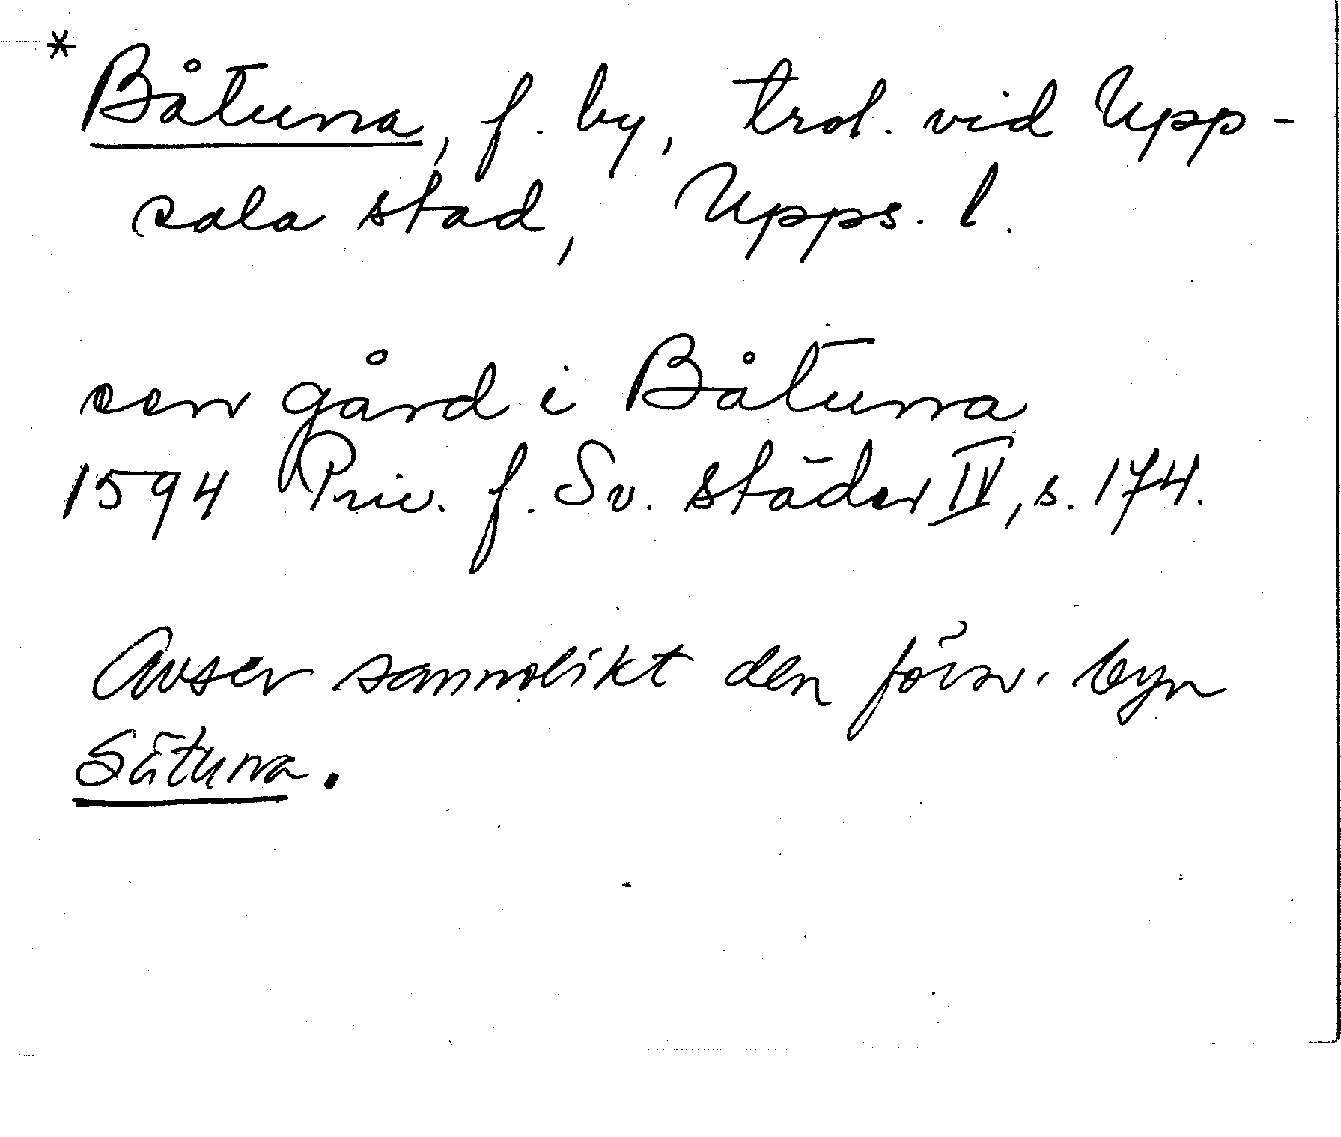 * Båtuna, f. by, trol. vid Upp-
sala stad, Upps. l.
een gård i Båtuna
1594 Priv. f. Sv. städer IV, s. 174.
Avser sannolikt den försv. byn
Såtuna.